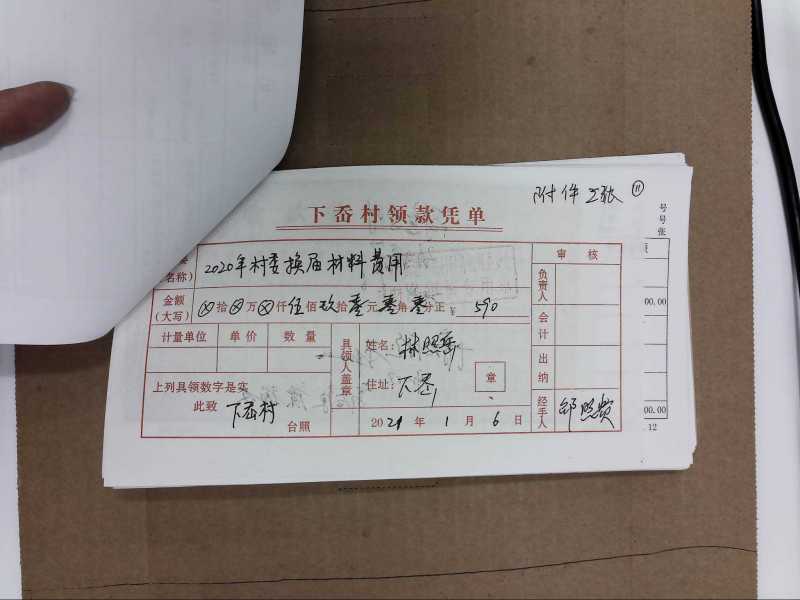 附件 2张 ⑪
下岙村领款凭单
(名称) 2020年村委换届材料费用
审核
金额(大写) ⊗拾⊗万⊗仟伍佰玖拾零元零角零分正 ¥ 590
负责人
计量单位 单价 数量
会计
具领人盖章
姓名: 林照岳
住址: 下岙
章
出纳
上列具领数字是实
此致 下岙村 台照
2021年1月6日
经手人
号
号
张
00.00
00.00
12